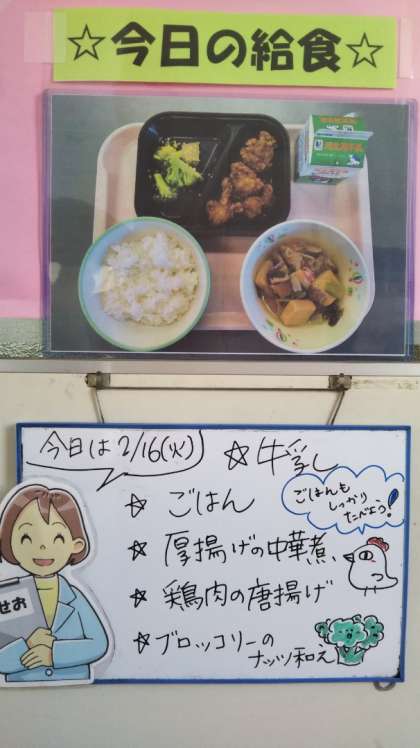 ☆今日の給食☆
今日は2/16(火)
☆牛乳
☆ごはん
ごはんも
しっかり
たべよう!
☆厚揚げの中華煮、
☆鶏肉の唐揚げ
☆ブロッコリーの
ナッツ和え
せお